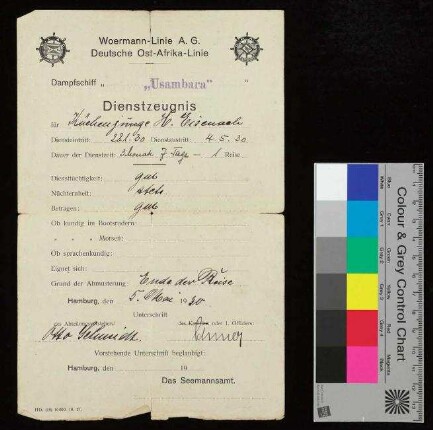 Woermann-Linie A. G.
Deutsche Ost-Afrika-Linie
Dampfschiff „Usambara"
Dienstzeugnis
für Küchenjunge H. Eisenach
Diensteintritt: 22.1.30 Dienstaustritt: 4.5.30
Dauer der Dienstzeit: 3 Monate 7 Tage – 1 Reise
Diensttüchtigkeit: gut
Nüchternheit: stets
Betragen: gut
Ob kundig im Bootsrudern:
„ „ Morsen:
Ob sprachenkundig:
Eignet sich:
Grund der Abmusterung: Ende der Reise
Hamburg, den 5. Mai 1930
Unterschrift
des 1. Offiziers:
Otto Schmidt
Vorstehende Unterschrift beglaubigt:
Hamburg, den 19
Das Seemannsamt.
Colour & Grey Control Chart
Blue
Cyan
Green
Yellow
Red
Magenta
White
Grey 1
Grey 2
Grey 3
Grey 4
Black